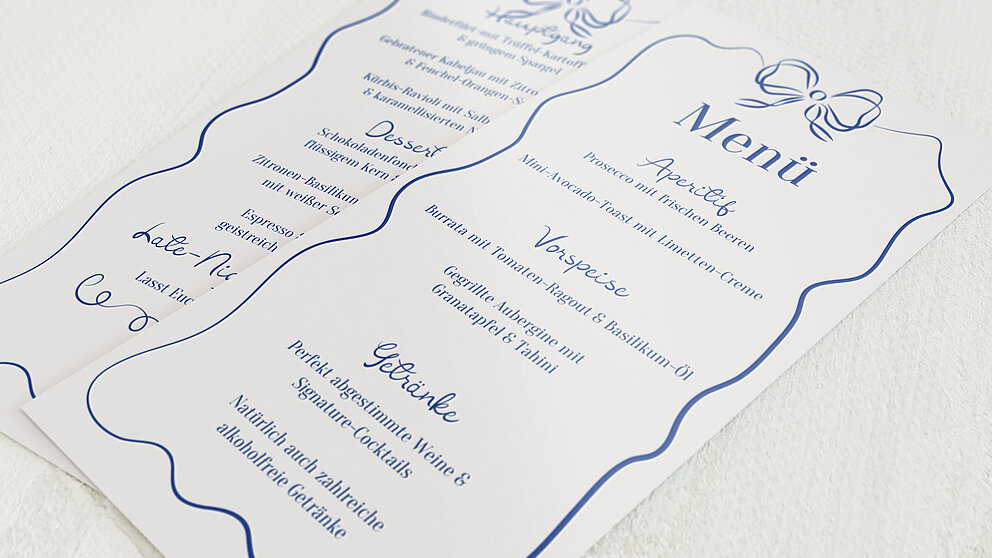 Menü
Aperitif
Prosecco mit frischen Beeren
Mini-Avocado-Toast mit Limetten-Creme
Vorspeise
Burrata mit Tomaten-Ragout & Basilikum-Öl
Gegrillte Aubergine mit
Granatapfel & Tahini
Getränke
Perfekt abgestimmte Weine &
Signature-Cocktails
Natürlich auch zahlreiche
alkoholfreie Getränke
Hauptgang
Rinderfilet mit Trüffel-Kartoff
& grünem Spargel
Gebratener Kabeljau mit Zitro
& Fenchel-Orangen-S
Kürbis-Ravioli mit Salb
& karamellisierten
Dessert
Schokoladenfond
flüssigem Kern
Zitronen-Basilikum
mit weißer
Espresso
geistreich
Late-Nig
Lasst Euc